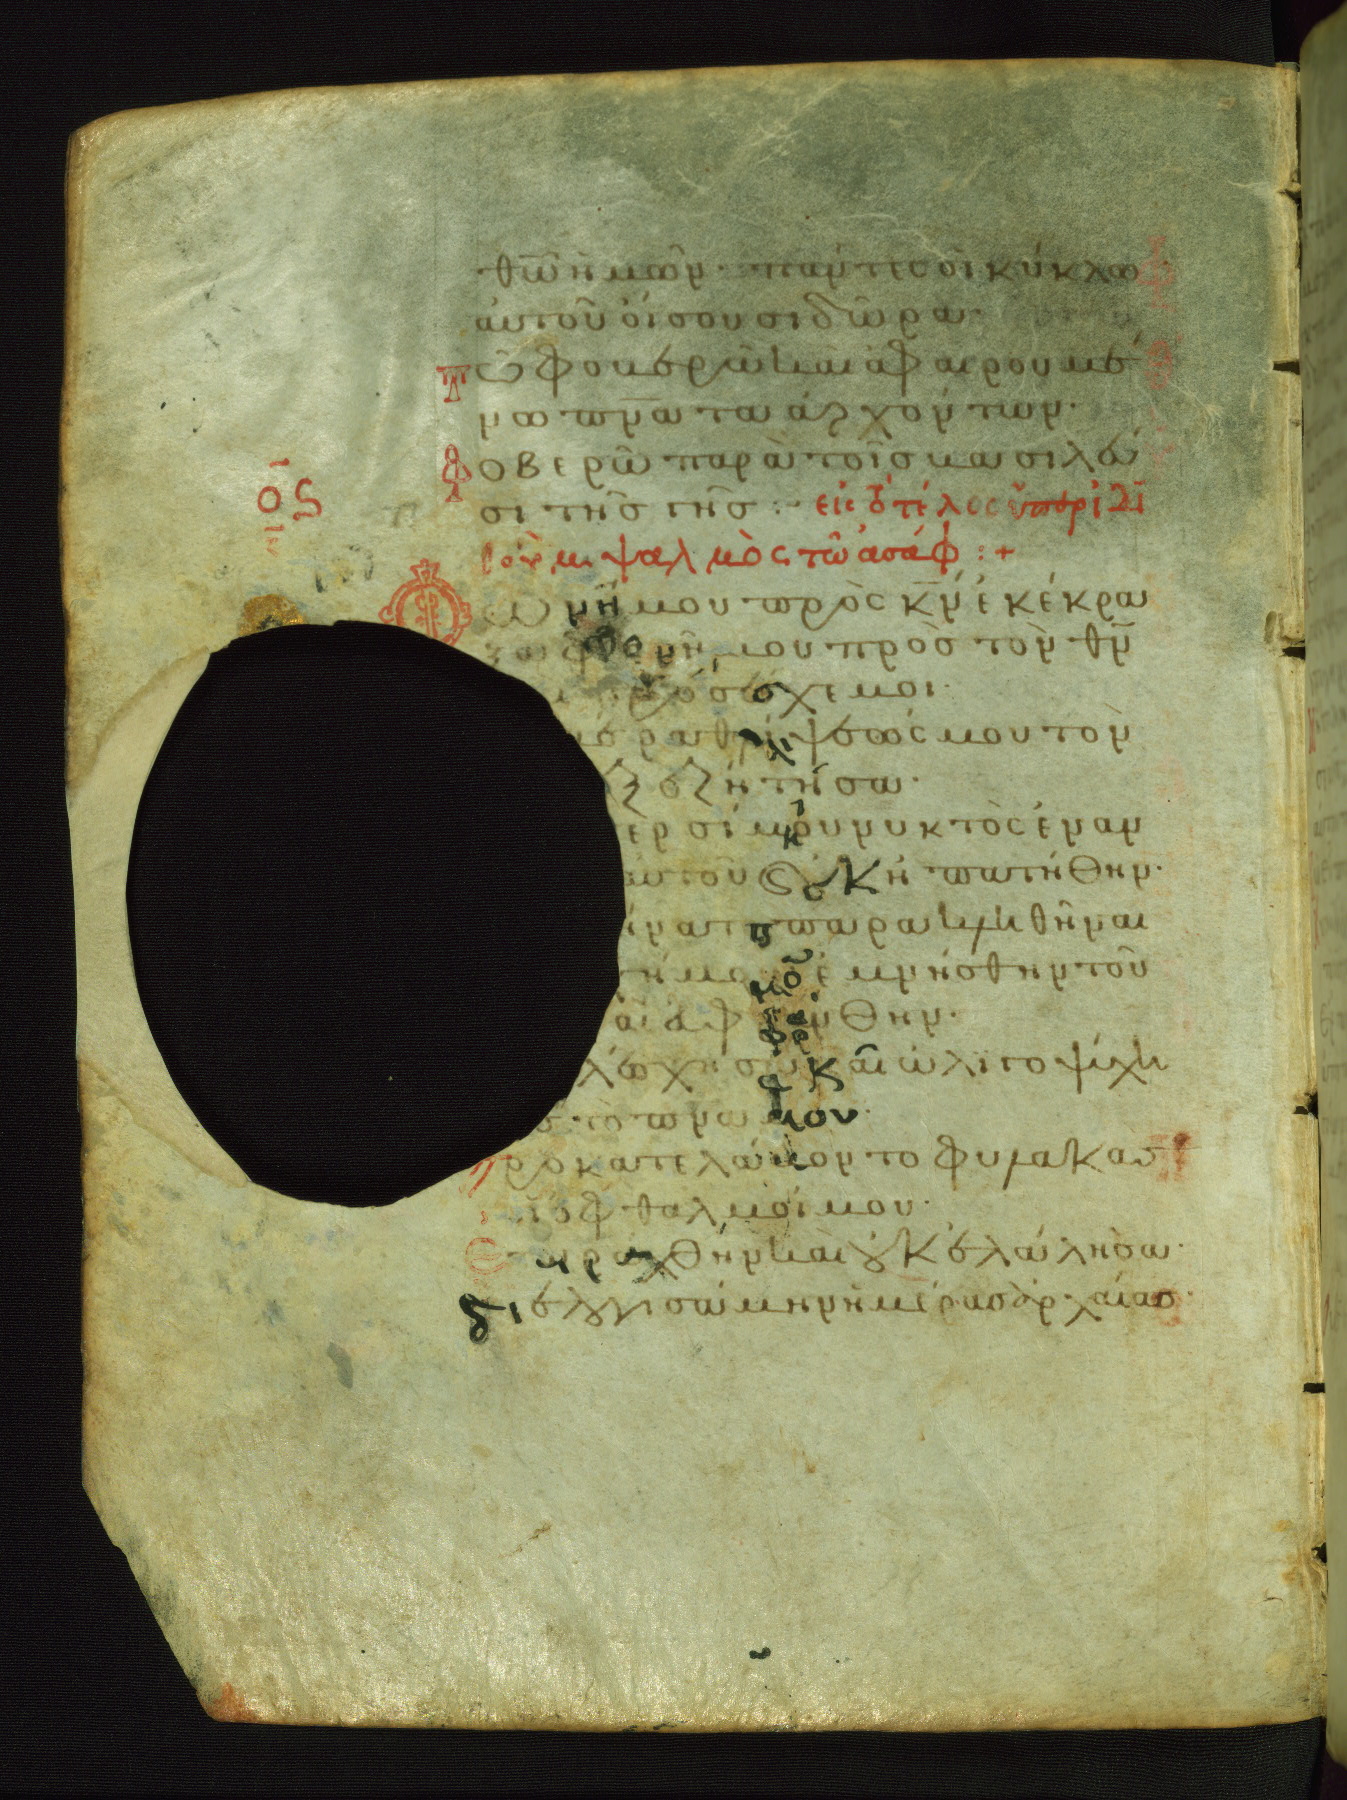 θω ἡμῶν· πάντες οἱ κύκλω
αὐτοῦ οἴσουσι δῶρα·
Τῶ φοβερῶ καὶ ἀφαιρουμέ
νω πνα τα ἀρχόντων·
Φοβερῶ παρὰ τοῖς βασιλεῦ
σι τῆς γῆς :· εἰς τὸ τέλος ὑπὲρ ἰδι
θούμ ψαλμὸς τῶ ἀσάφ :+
ος
Φωνῆ μου πρὸς κν ἐκέκρα
ξα φωνῆ μου πρὸς τὸν θν
πρόσχε μοι·
μέρα θλίψεώς μου τὸν
ἐξεζήτησα·
χερσί μου νυκτὸς ἐναν
αὐτοῦ οὐκ ἠπατήθην·
παρακληθῆναι
μου ἐμνήσθην τοῦ
φράνθην·
λέσχησα καὶ ὠλιγοψύχη
τὸ πνα μου·
Προκατελάβοντο φυλακὰς
οἱ ὀφθαλμοί μου·
Ἐταράχθην καὶ οὐκ ἐλάλησα·
διελογισάμην ἡμέρας ἀρχαίας·